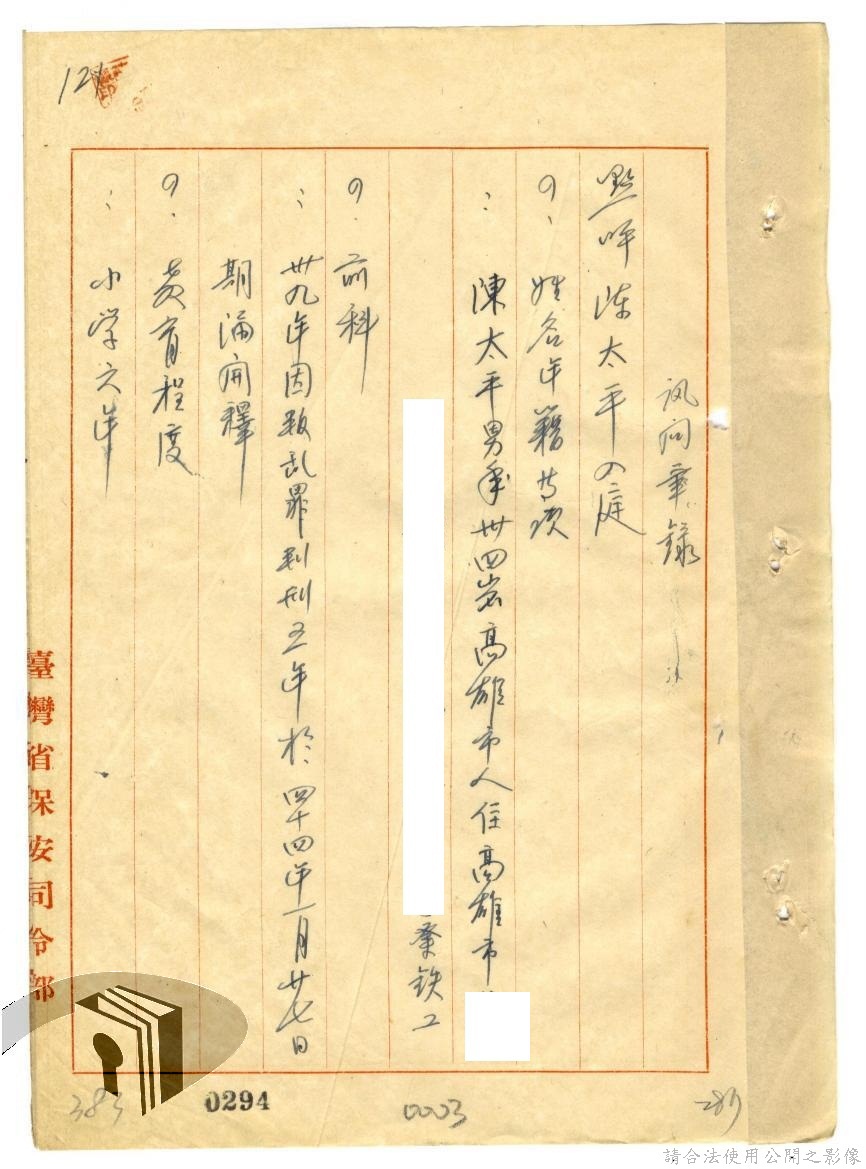 訊问筆録
點呼陳太平の庭
の、姓名年籍等項
：陳太平男年卅四岁高雄市人住高雄市
業鉄工
の、前科
：卅九年因叛乱罪判刑五年於四十四年一月廿七日
期滿開釋
の、教育程度
：小学六年
臺灣省保安司令部
121
383
0294
0003
請合法使用公開之影像